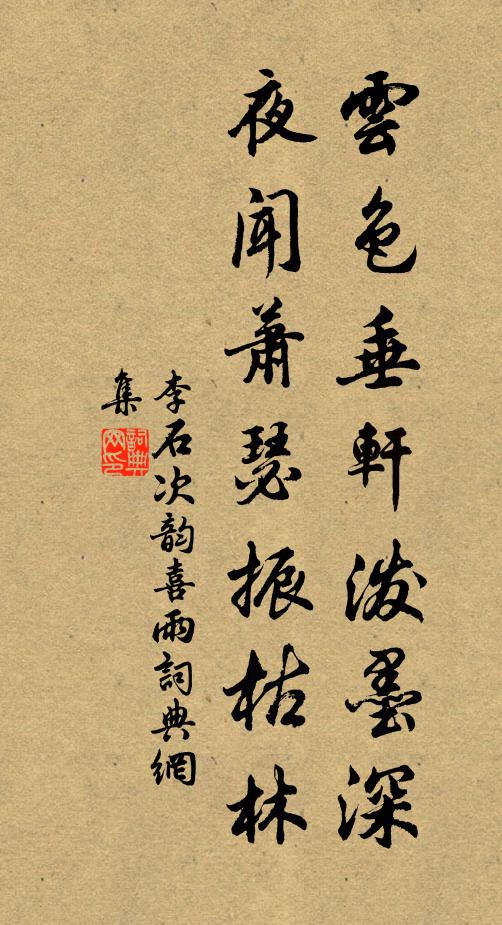 雲色垂軒潑墨深
夜聞蕭瑟振枯林
李石次韵喜雨詞典網
集
詞典網印